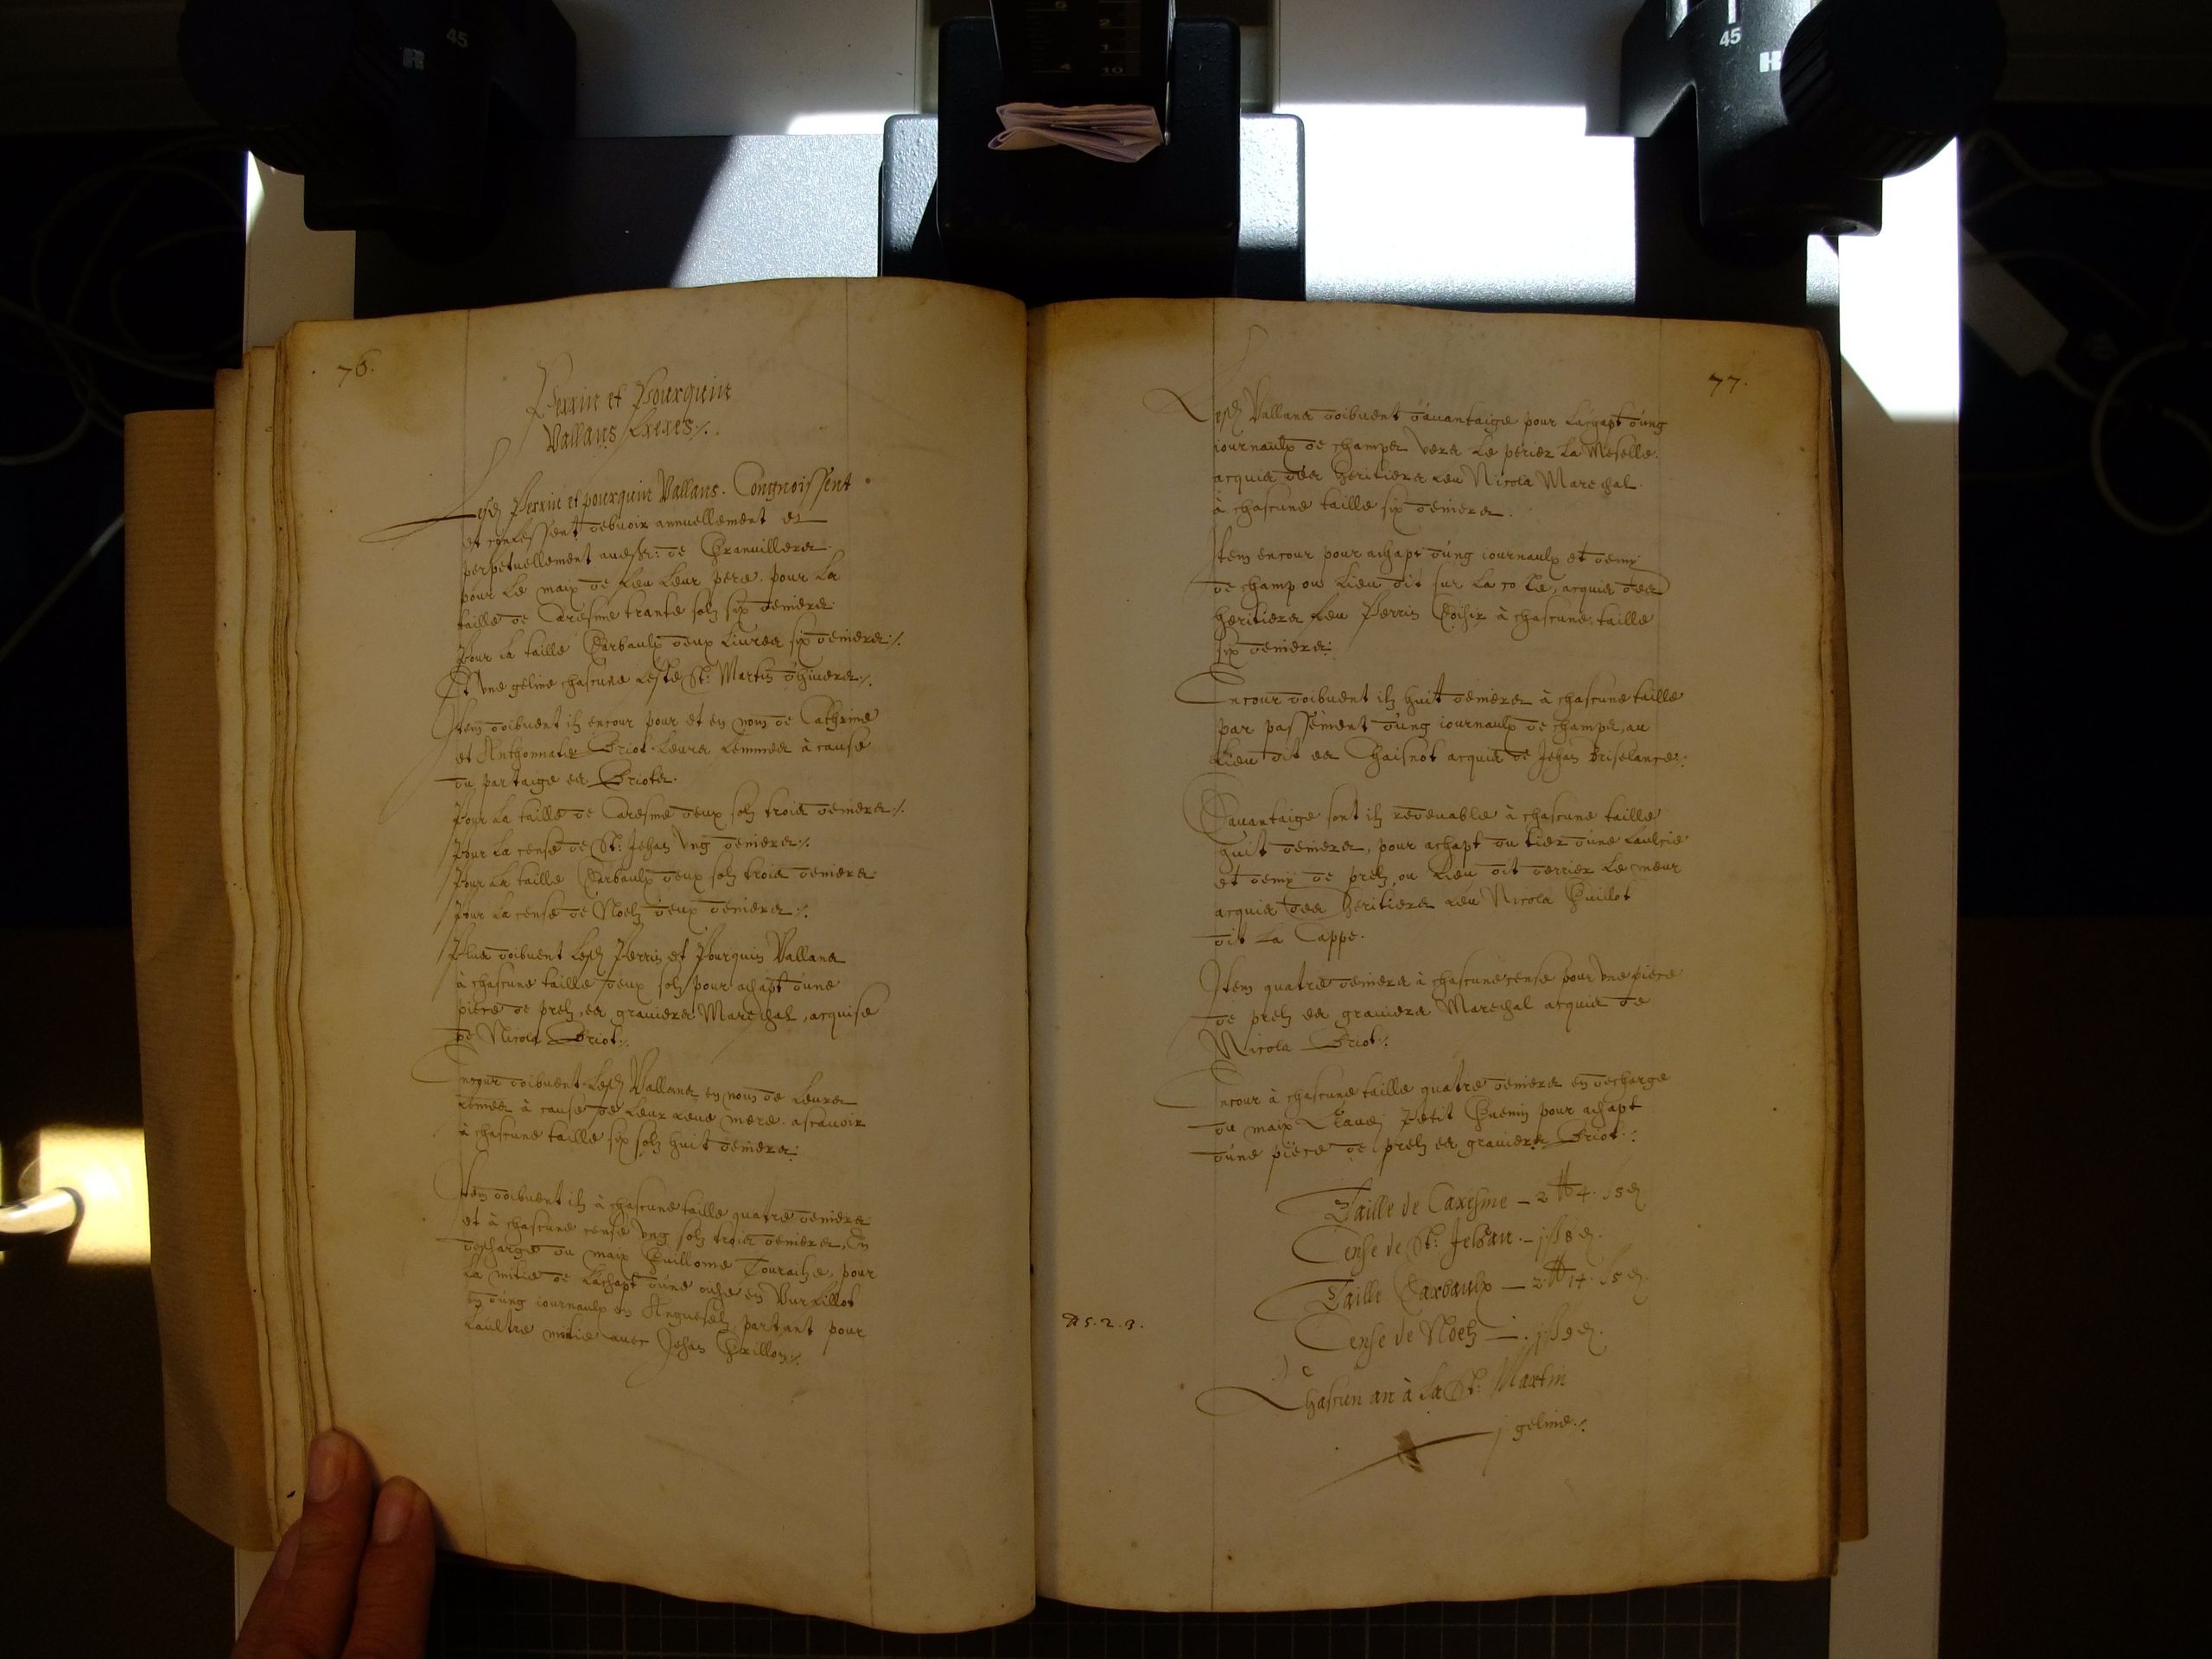 76.
Perrin et Pourquin
Vallans freres /.
Lesd Perrin et pourquin Vallans. Congnoissent
et confessent debvoir annuellement et
perpetuellement audsr: de Granvillers
pour le maix de feu leur pere. pour la
taille de Caresme trante solz six deniers
Pour la taille Carbaulx deux livres six deniers /.
Et une geline chascune feste St: Martin d'hivers /.
Item doibvent ilz encour pour et en nom de Cathrine
et Anthonnate Briot leurs femmes à cause
du partaige es Briots.
Pour la taille de Caresme deux solz trois deniers /.
Pour la cense de St: Jehan ung deniers /.
Pour la taille Carbaulx deux solz trois deniers
Pour la cense de Noelz deux deniers /.
Plus doibvent lesd Perrin et Pourquin Vallans
à chascune taille deux solz pour achapt d'une
piece de prelz, es graviers Marechal, acquise
de Nicola Briot /.
Encour doibvent lesd Vallans en nom de leurs
femes à cause de leur feue mere. ascavoir
à chascune taille six solz huit deniers:
Item doibvent ilz à chascune taille quatre deniers
et à chascune cense ung solz trois deniers, En
descharge du maix Guillome Tourache, pour
la mitie de l'achapt d'une ouche en Vurfillot
en d'ung iournaulx en Angueselz partant pour
l'aultre mitie avec Jehan Grillon /.
77.
Lesd Vallans doibvent d'avantaige pour l'achapt d'ung
iournaulx de champs vers le perier la Meselle.
acquis des heritiers feu Nicola Marechal
à chascune taille six deniers.
Item encour pour achapt d'ung iournaulx et demy
de champ ou lieu dit sur la co te, acquis des
heritiers feu Perrin Voisir à chascune taille
six deniers:
Encour doibvent ilz huit deniers à chascune taille
par passement d'ung iournaulx de champs, au
lieu dit es Chaisnot acquis de Jehan Briselance:
Davantaige sont ilz redevable à chascune taille
huit deniers, pour achapt du tier d'une faulcie
et demy de prelz, ou lieu dit derrier le meur
acquis des heritiers feu Nicola Guillot
dit la Cappe.
Item quatre deniers à chascune cense pour une piece
de prelz es graviers Marechal acquis de
Nicola Briot /.
Encour à chascune taille quatre deniers en decharge
du maix Petit Guenin pour achapt
d'une piece de prelz es graviers Briot:
Taille de Caresme – 2 ₶ 4. s 5 d
Cense de St: Jehan. – j s 8 d.
Taille Carbaulx – 2 ₶ 14. s 5 d.
₶ 5. 2. 3.
Cense de Noelz – . j s 9 d.
Chascun an à la St: Martin
j geline /.
45
45